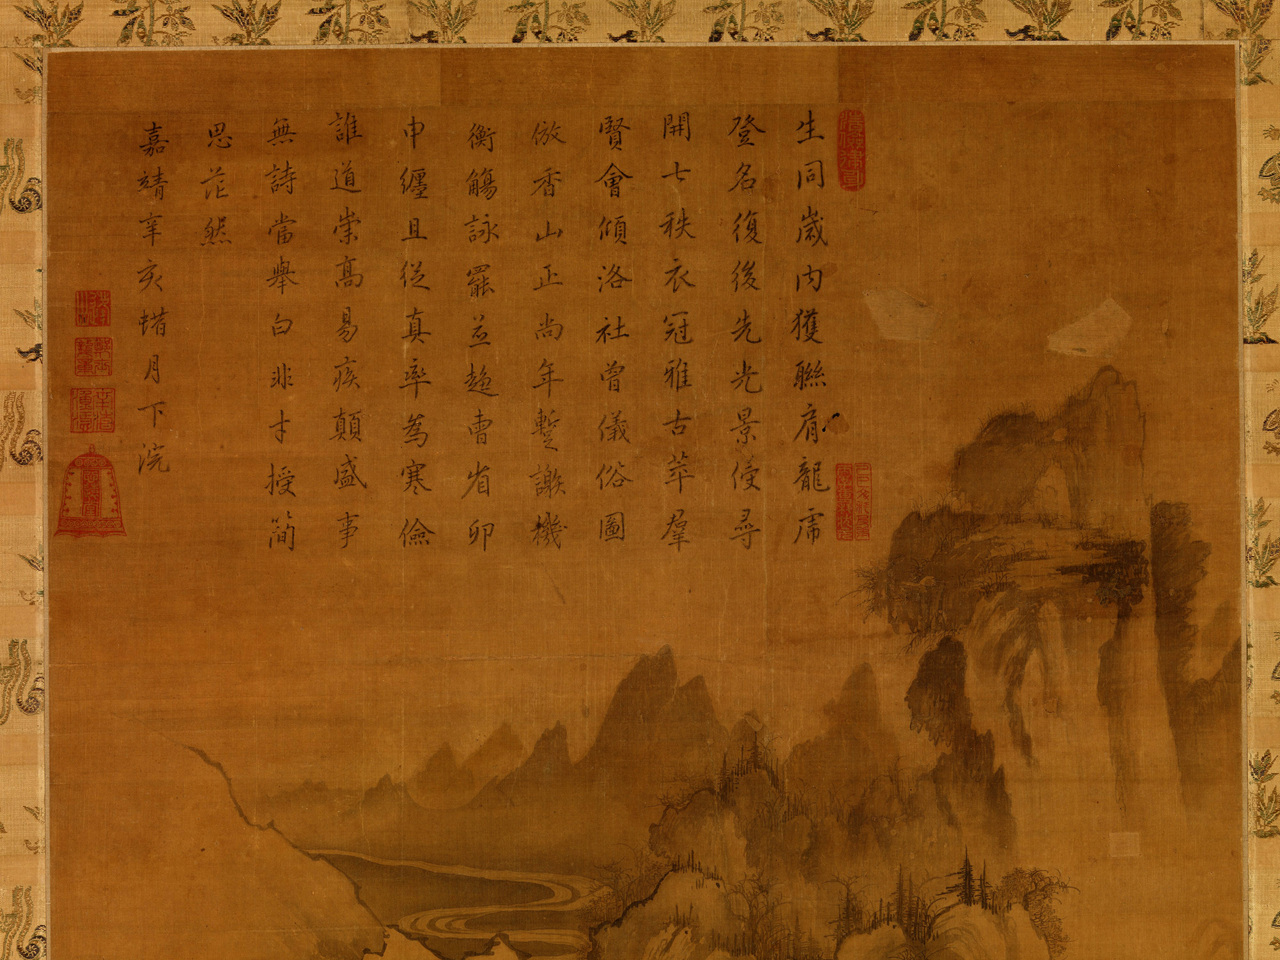 生同歲內獲聯肩龍虎
登名復後先光景侵尋
開七秩衣冠雅古萃羣
賢會傾洛社曾儀俗圖
倣香山正尚年蹔謝機
衡觴詠罷並趍曹省卯
申纏且從真率為寒儉
誰道崇高易疾顛盛事
無詩當舉白非才授簡
思茫然
嘉靖辛亥蜡月下浣